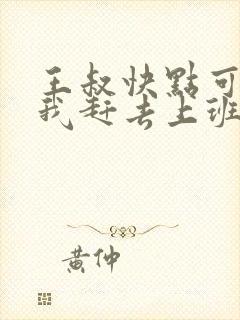 王叔快點可
我赶去上班
黄仲